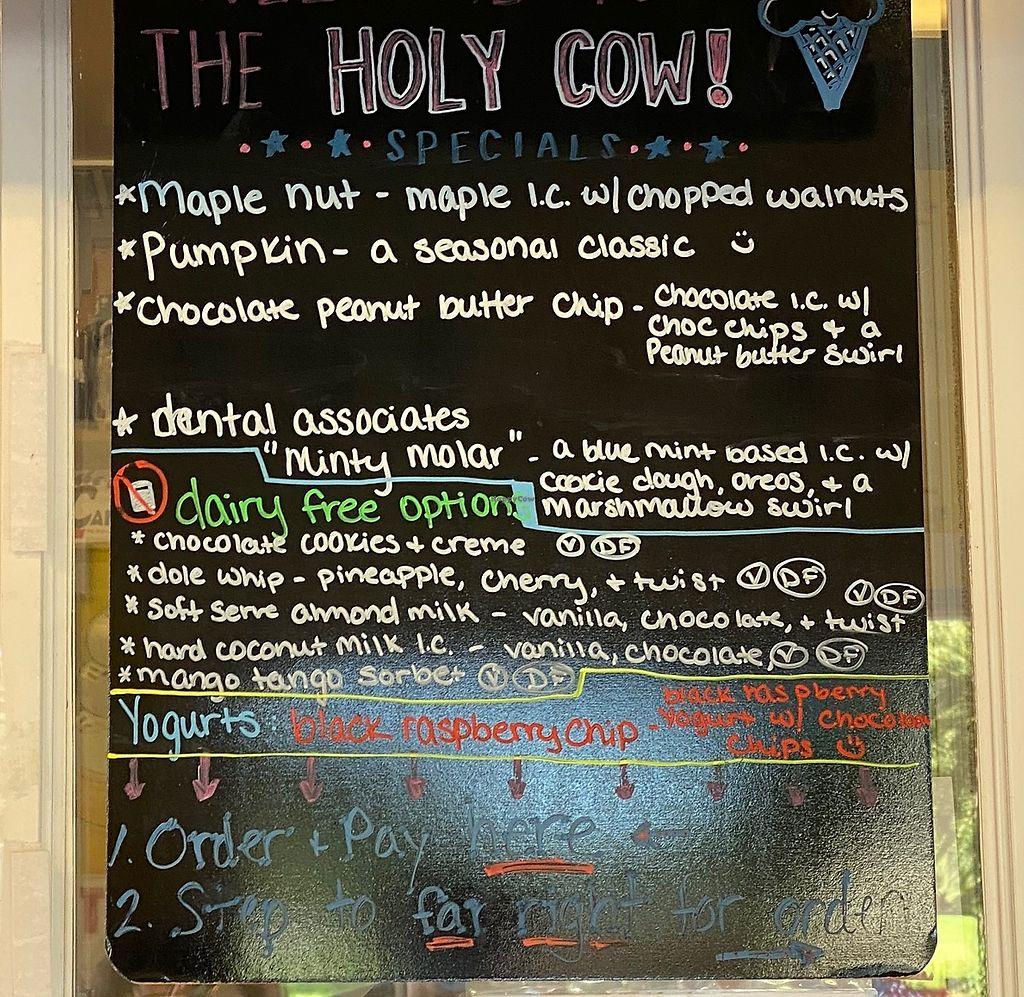 THE HOLY COW!
SPECIALS
*Maple nut - maple I.C. w/ chopped walnuts
*Pumpkin - a seasonal classic
*Chocolate peanut butter chip - Chocolate I.C. w/
choc chips + a
Peanut butter swirl
* dental associates
"Minty Molar" - a blue mint based I.C. w/
cookie dough, oreos, + a
marshmallow swirl
dairy free options
* chocolate cookies + creme V DF
* dole whip - pineapple, cherry, + twist V DF
* soft serve almond milk - vanilla, chocolate, + twist V DF
* hard coconut milk I.C. - vanilla, chocolate, V DF
*mango tango sorbet V DF
Yogurts: black raspberry chip - black raspberry
Yogurt w/ chocolate
chips
1. Order + Pay here
2. Step to far right for order